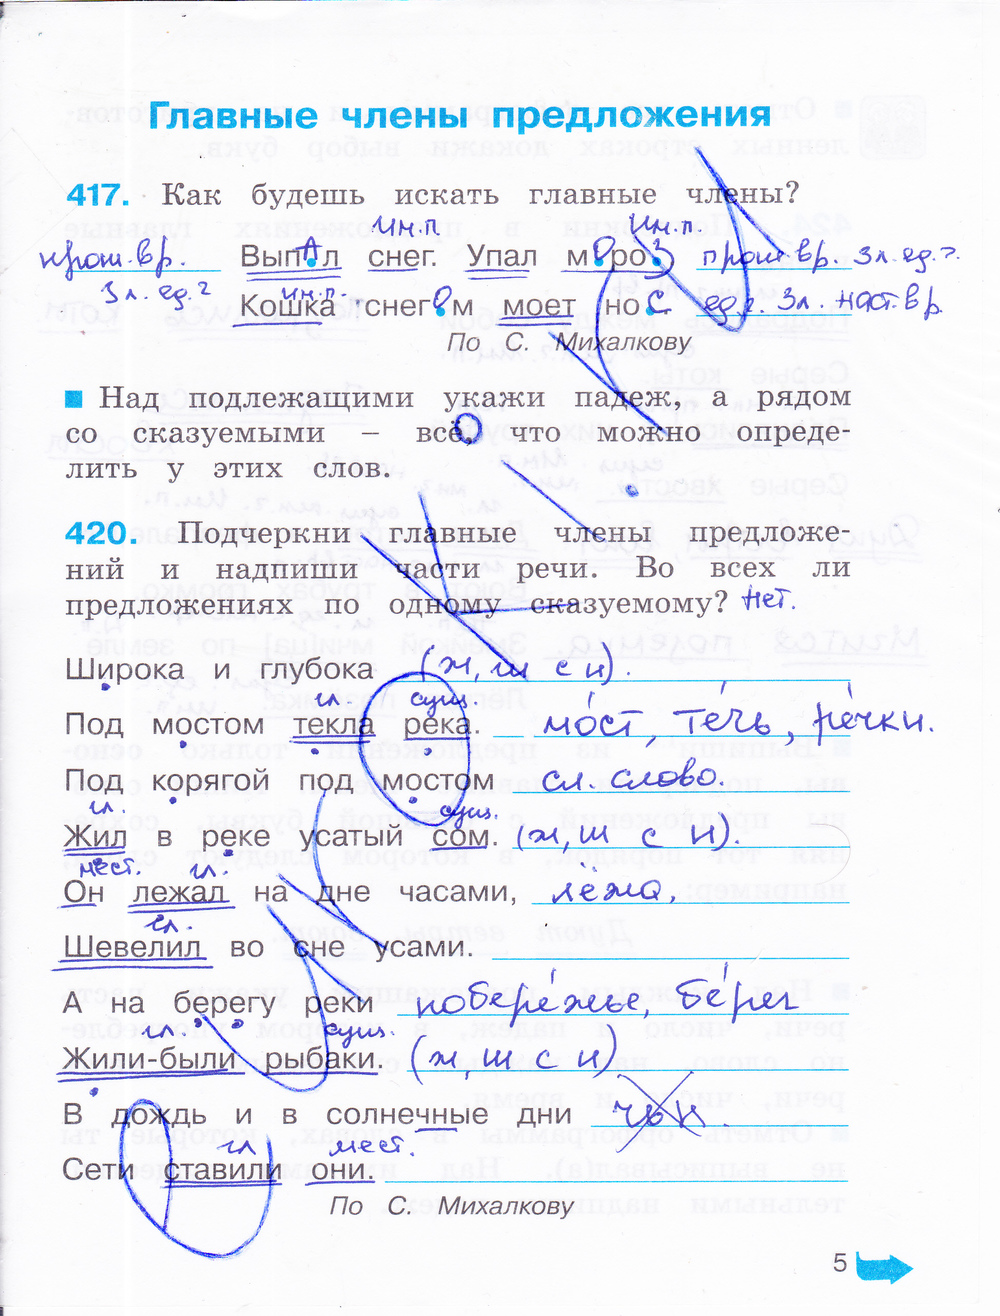 Главные члены предложения
417. Как будешь искать главные члены?
Ин.п. Ин.п.
прош.вр. Выпал снег. Упал мороз прош.вр. 3л. ед.ч.
3л. ед.ч ин.п.
Кошка снегом моет нос ед.ч. 3л. наст.вр.
По С. Михалкову
Над подлежащими укажи падеж, а рядом
со сказуемыми – все, что можно опреде-
лить у этих слов.
420. Подчеркни главные члены предложе-
ний и надпиши части речи. Во всех ли
предложениях по одному сказуемому? Нет.
Широка и глубока (ж, ш с и).
гл. сущ.
Под мостом текла река. мо́ст, те́чь, ре́чки.
Под корягой под мостом сл. слово.
гл. сущ.
Жил в реке усатый сом. (ж, ш с и).
мест. гл.
Он лежал на дне часами, лёжа,
гл.
Шевелил во сне усами.
А на берегу реки побере́жье, бе́рег
гл. сущ.
Жили-были рыбаки. (ж, ш с и)
В дождь и в солнечные дни
гл мест.
Сети ставили они.
По С. Михалкову
5